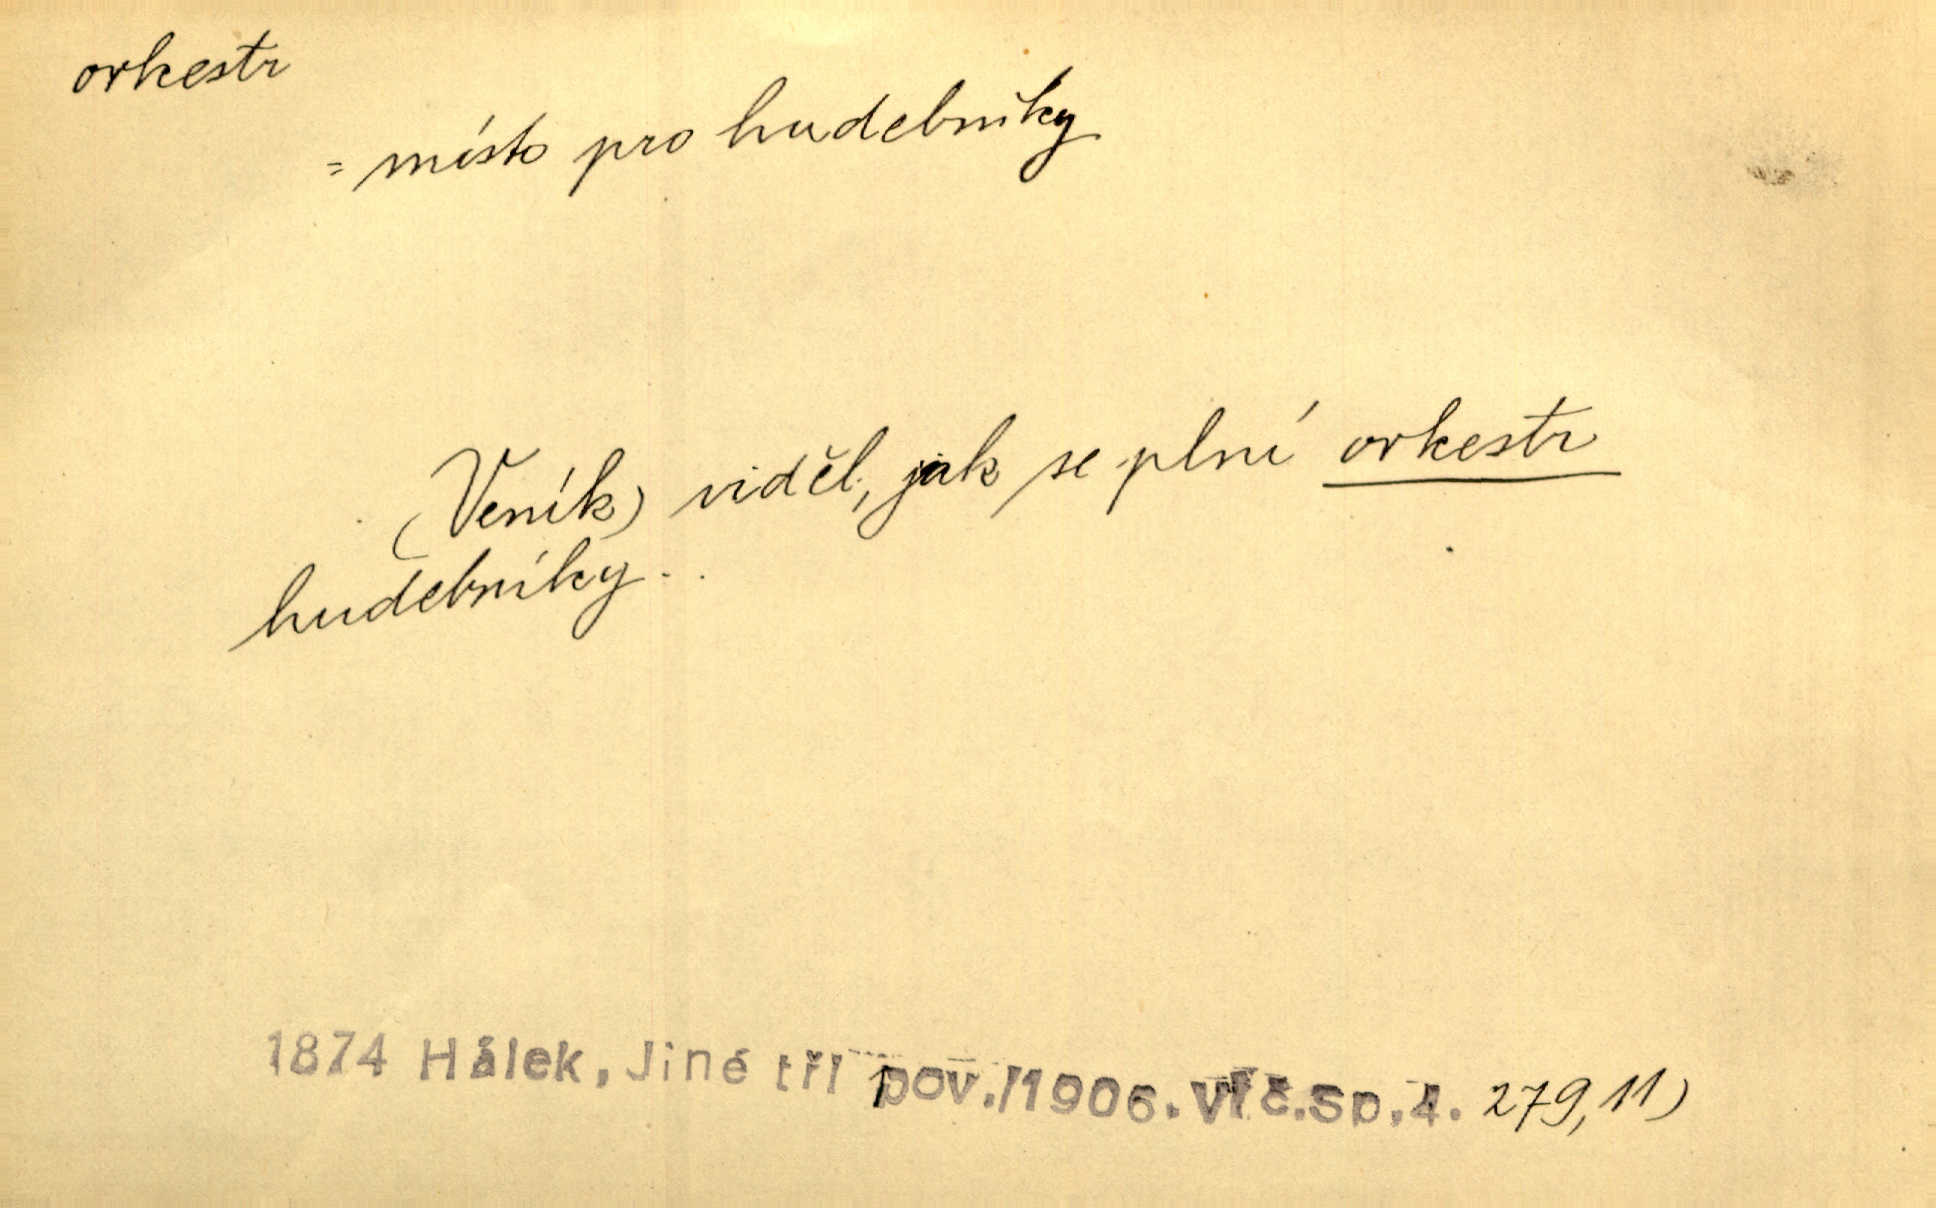 orkestr
= místo pro hudebníky
(Veník) viděl, jak se plní orkestr
hudebníky..
1874 Hálek, Jiné tři pov./1906. Vlč.Sp.4. 279,11)